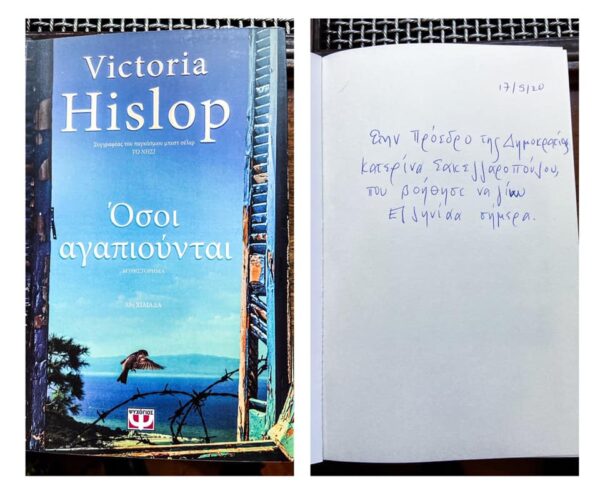 Victoria
Hislop
Συγγραφέας του παγκόσμιου μπεστ σέλερ
ΤΟ ΝΗΣΙ
Όσοι
αγαπιούνται
ΜΥΘΙΣΤΟΡΗΜΑ
ΧΙΛΙΑΔΑ
ΨΥΧΟΓΙΟΣ
17/5/20
Στην Πρόεδρο της Δημοκρατίας
Κατερίνα Σακελλαροπούλου,
που βοήθησε να γίνω
Ελληνίδα σήμερα.